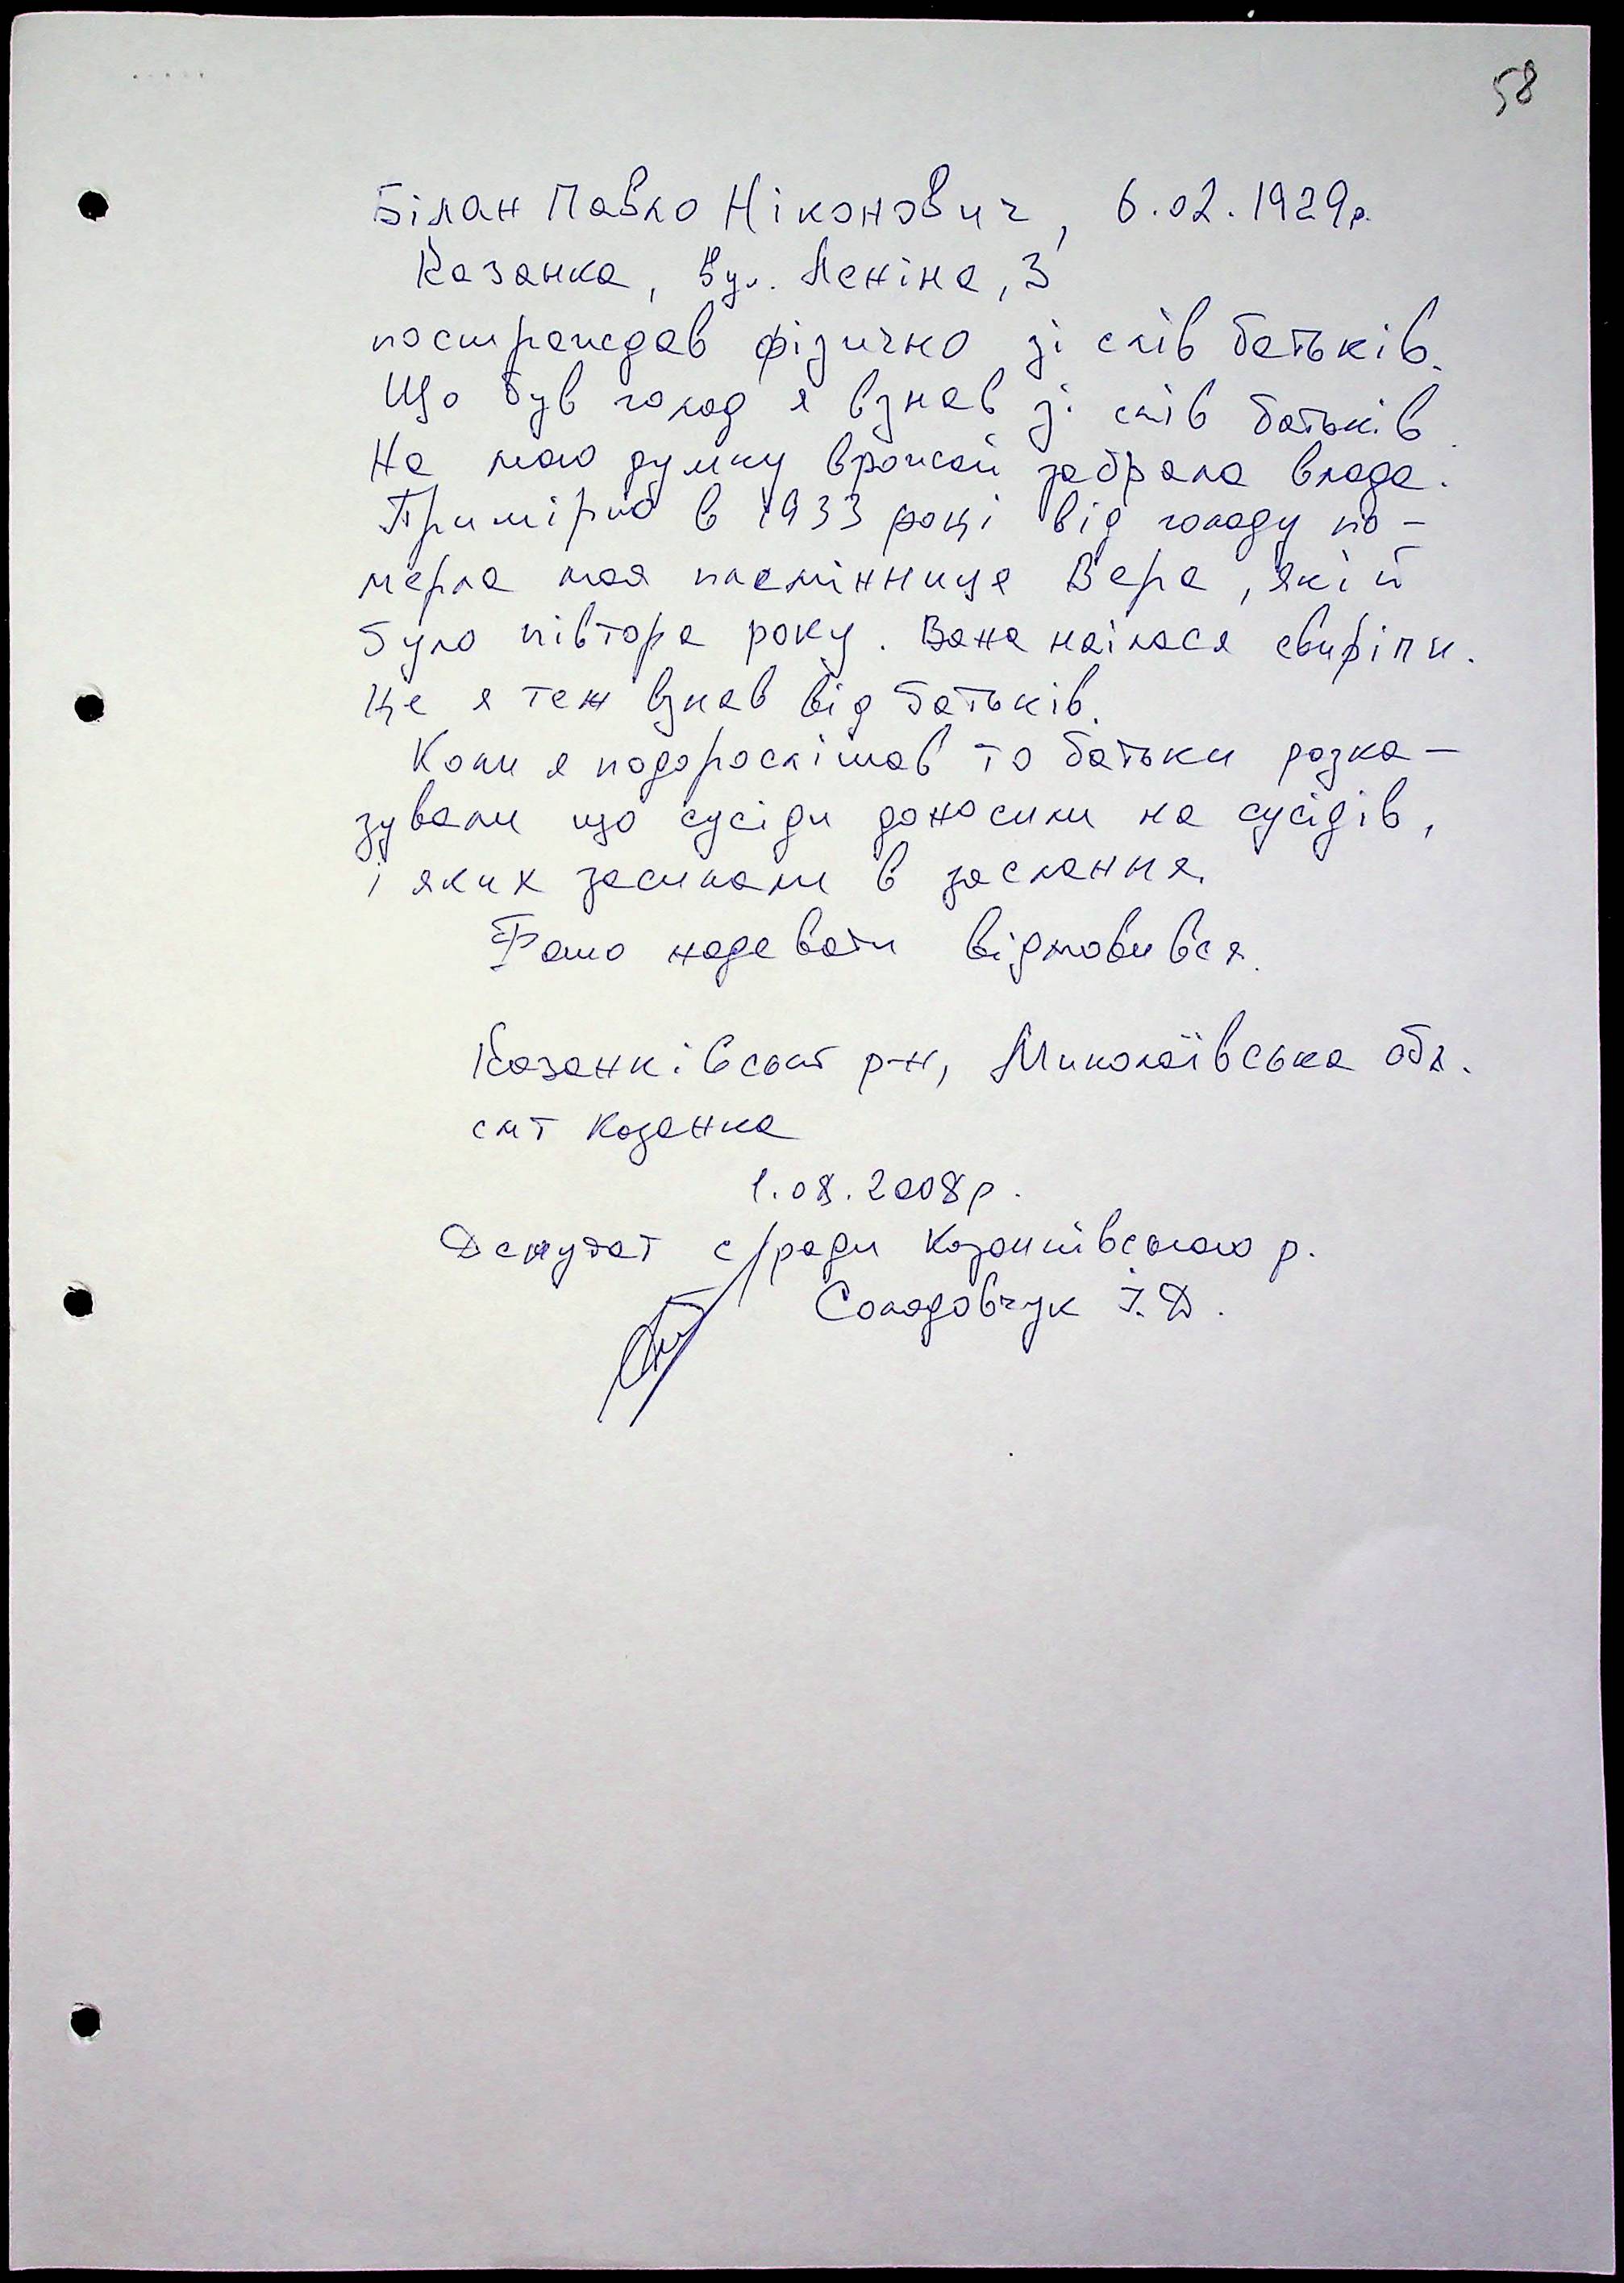 58
Білан Павло Ніконович, 6.02.1929р.
Казанка, вул. Леніна, 3
постраждав фізично зі слів батьків.
Що був голод я взнав зі слів батьків.
На мою думку врожай забрала влада.
Примірно в 1933 році від голоду по-
мерла моя племінниця Вера, якій
було півтора року. Вона наілася свиріпи.
Це я теж взнав від батьків.
Коли я подорослішав то батьки розка-
зували що сусіди доносили на сусідів,
і яких засилали в заслання.
Фото надавати відмовився.
Казанківський р-н, Миколаївська обл.
смт Казанка
1.08.2008р.
Депутат с/ради Казанківського р.
Солодовчук І.Д.